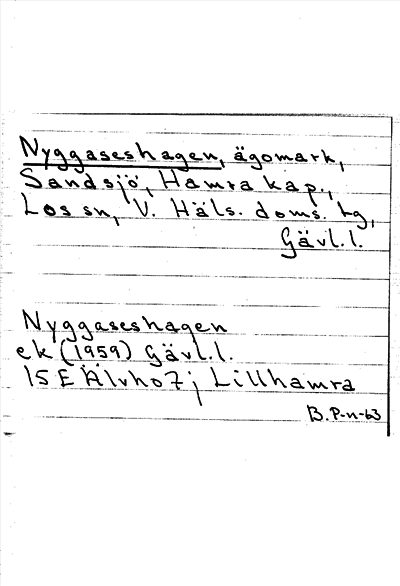 Nyggaseshagen, ägomark,
Sandsjö, Hamra kap.,
Los sn, V. Häls. doms. tg,
Gävl.l.
Nyggaseshagen
ek (1959) Gävl.l.
15E Älvho 7j Lillhamra
B.P-n-63